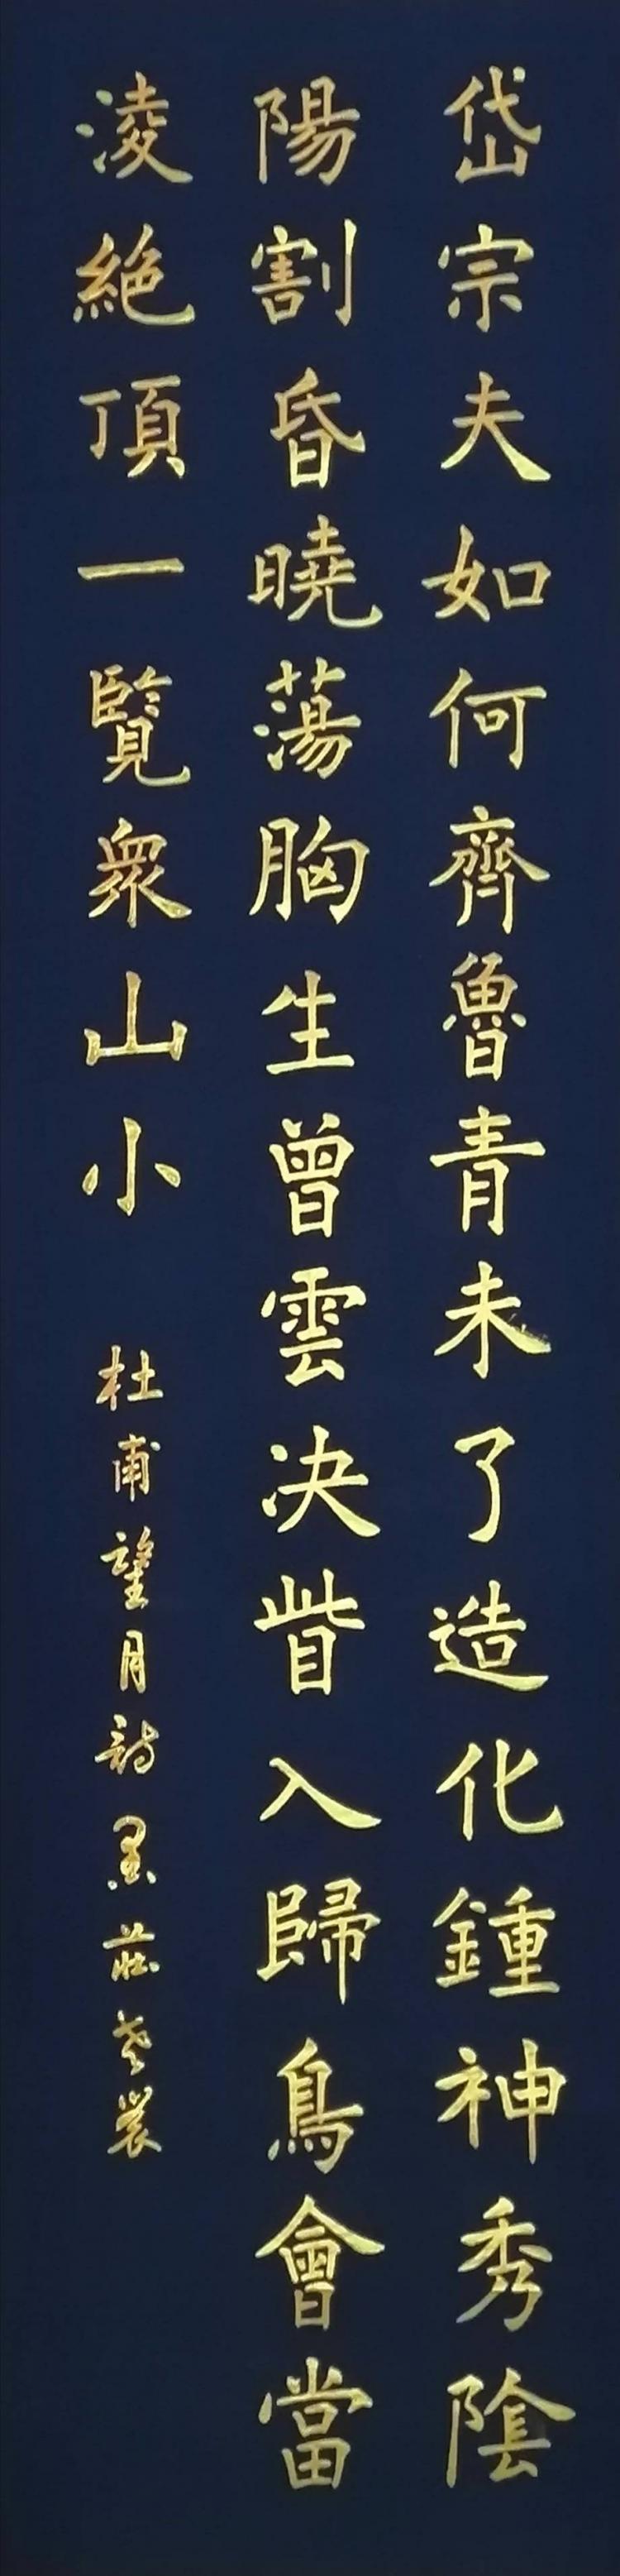 岱宗夫如何齊魯青未了造化鍾神秀陰
陽割昏曉蕩胸生曾雲決眥入歸鳥會當
淩絕頂一覽衆山小
杜甫望月詩墨莊老農